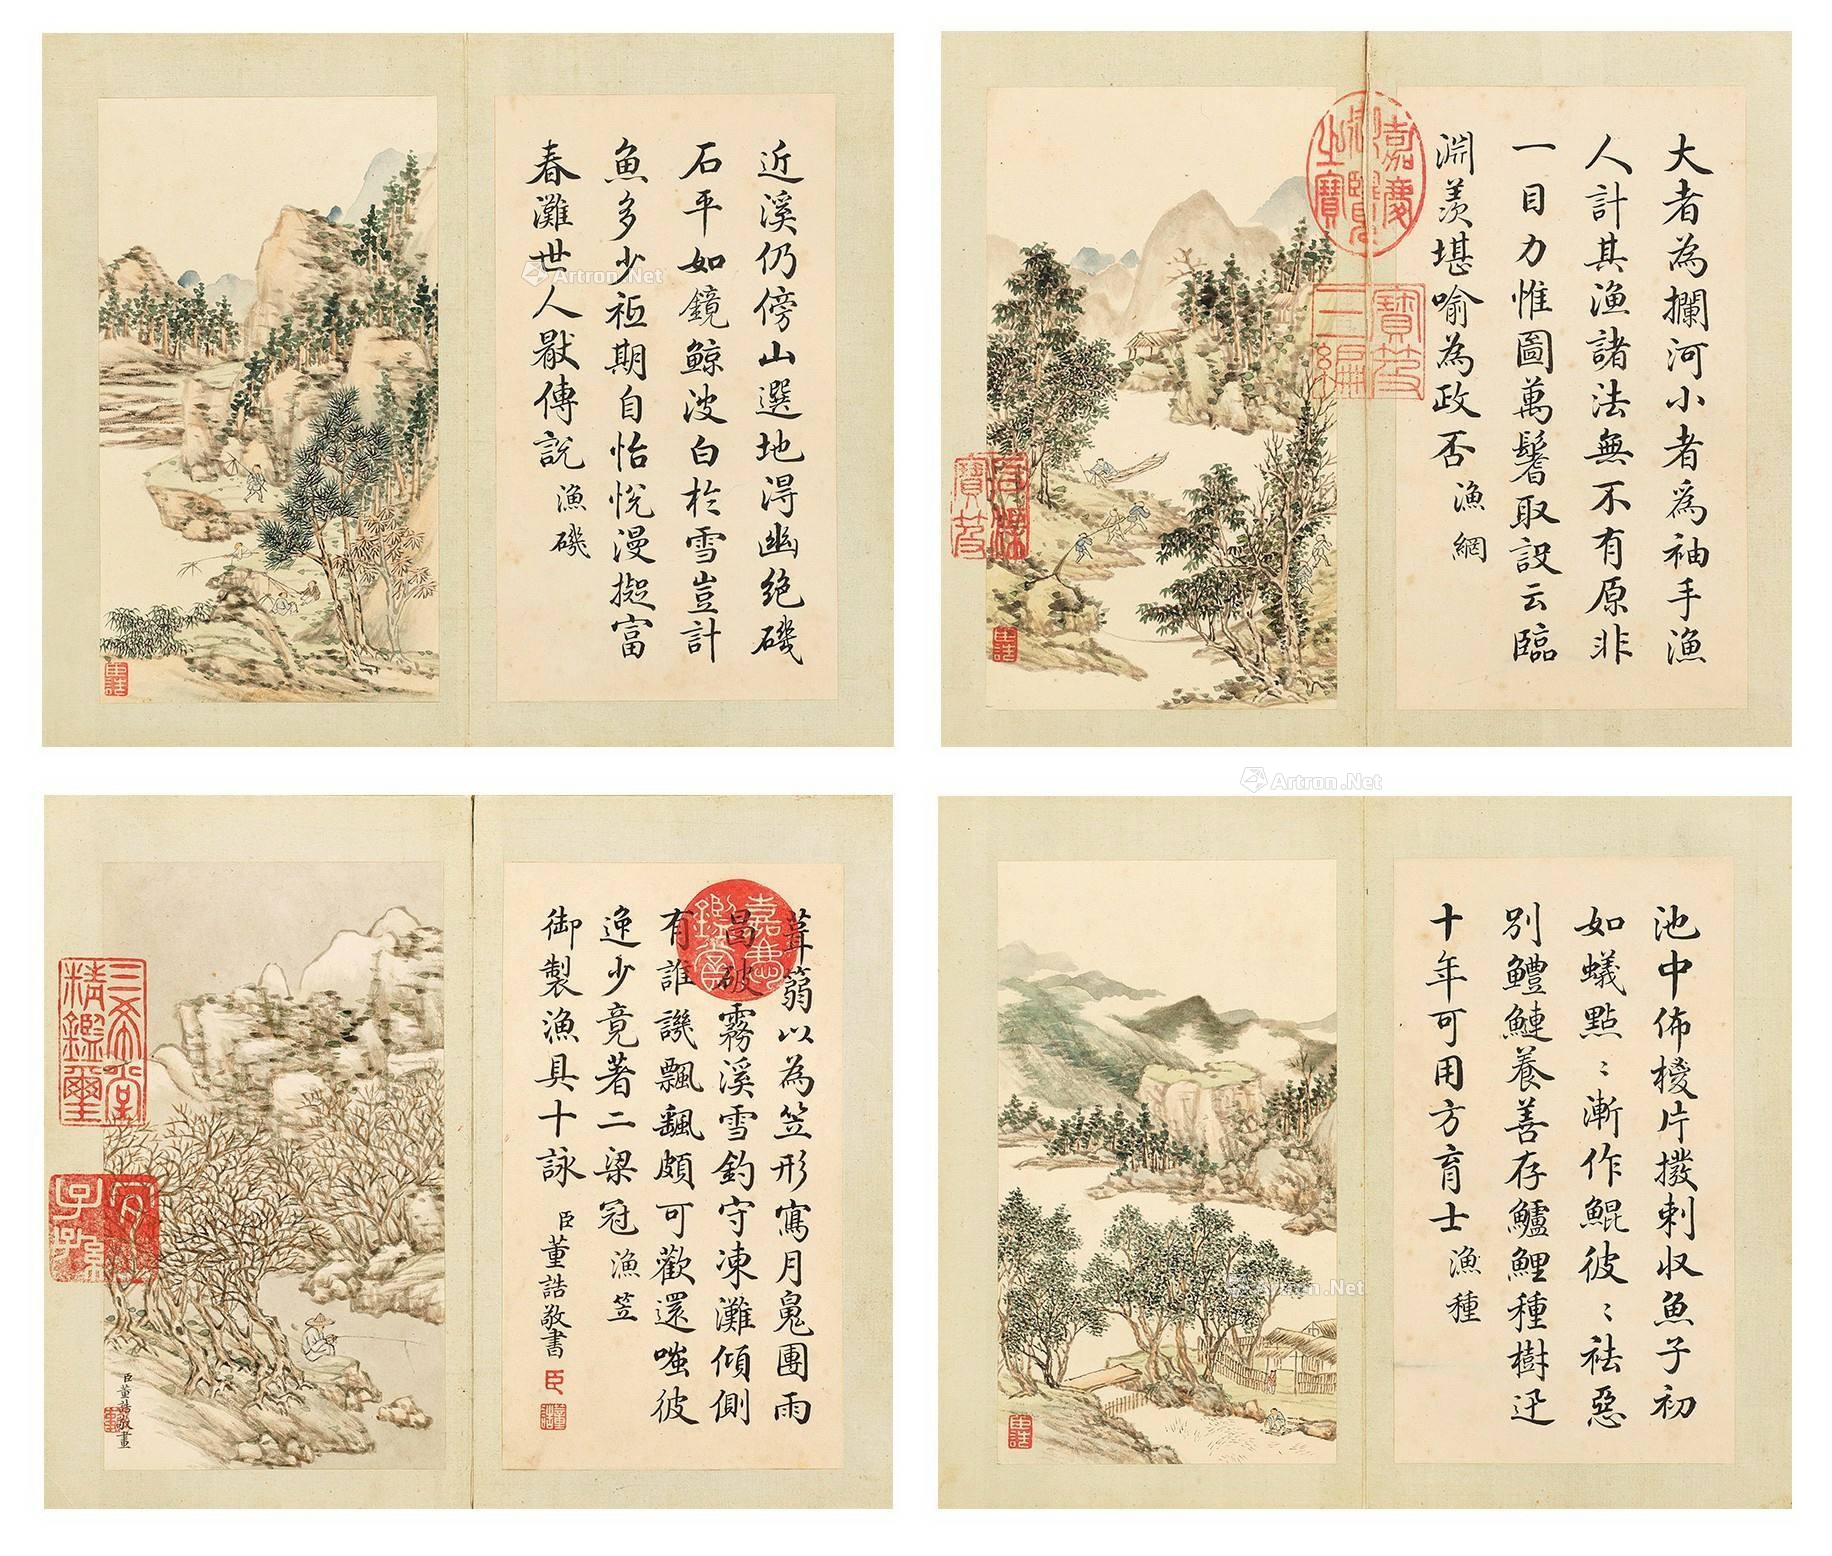 近溪仍傍山選地得幽絶磯
石平如鏡鯨波白於雪豈計
魚多少祗期自怡悅漫擬富
春灘世人猒傳説 漁磯
大者為攔河小者為袖手漁
人計其漁諸法無不有原非
一目力惟圖萬鬐取設云臨
淵羨堪喻為政否 漁網
嘉慶御覽之寶
寶笈三編
葺蒻以為笠形寫月鳬團雨
曷破霧溪雪釣守凍灘傾側
有誰譏飄飄頗可歡還嗤彼
逸少竟著二梁冠 漁笠
御製漁具十詠 臣董誥敬書
臣
嘉慶鑑賞
三希堂精鑑璽
宜子孫
臣董誥敬畫
池中佈椶片撥剌収魚子初
如蟻點〻漸作鯤彼〻祛惡
別鱧鰱養善存鱸鯉種種樹迅
十年可用方育士 漁種
Artron.Net
Artron.Net
Artron.Net
Artron.Net